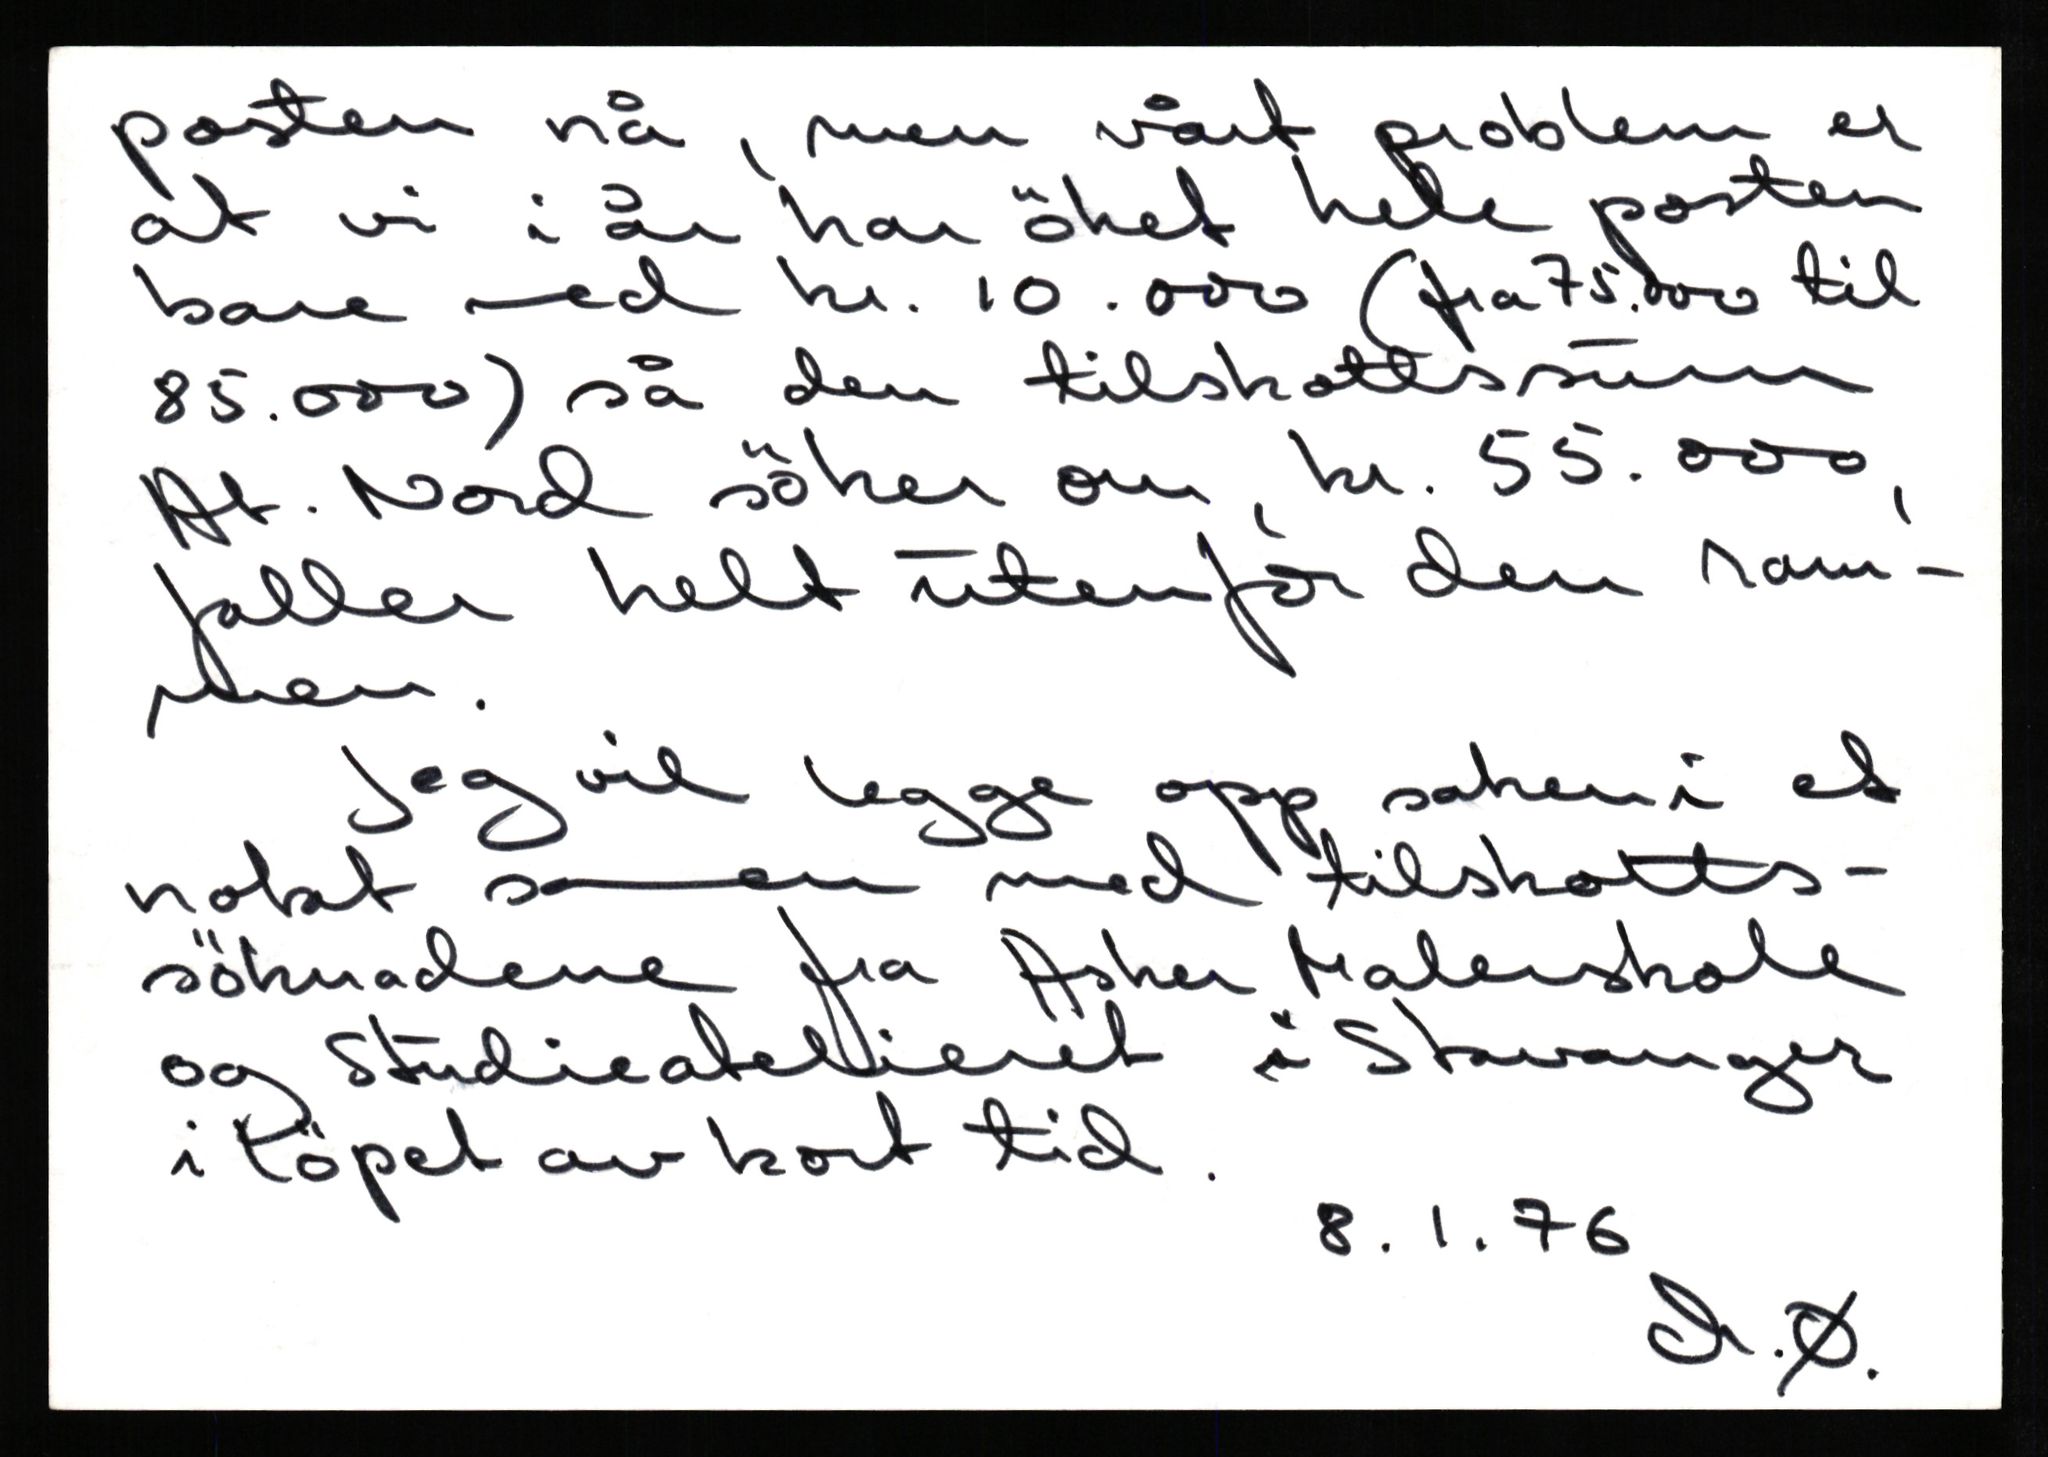 posten nå, men vårt problem er
at vi i år har öket hele posten
bare med kr. 10.000 (fra 75.000 til
85.000) så den tilskottssum
At. Nord söker om, kr. 55.000,
faller helt utenfor den ram-
men.
Jeg vil legge opp saken i et
notat sammen med tilskotts-
söknadene fra Asker Malerskole
og Studieatelieret i Stavanger
i löpet av kort tid.
8.1.76
Ch.Ø.